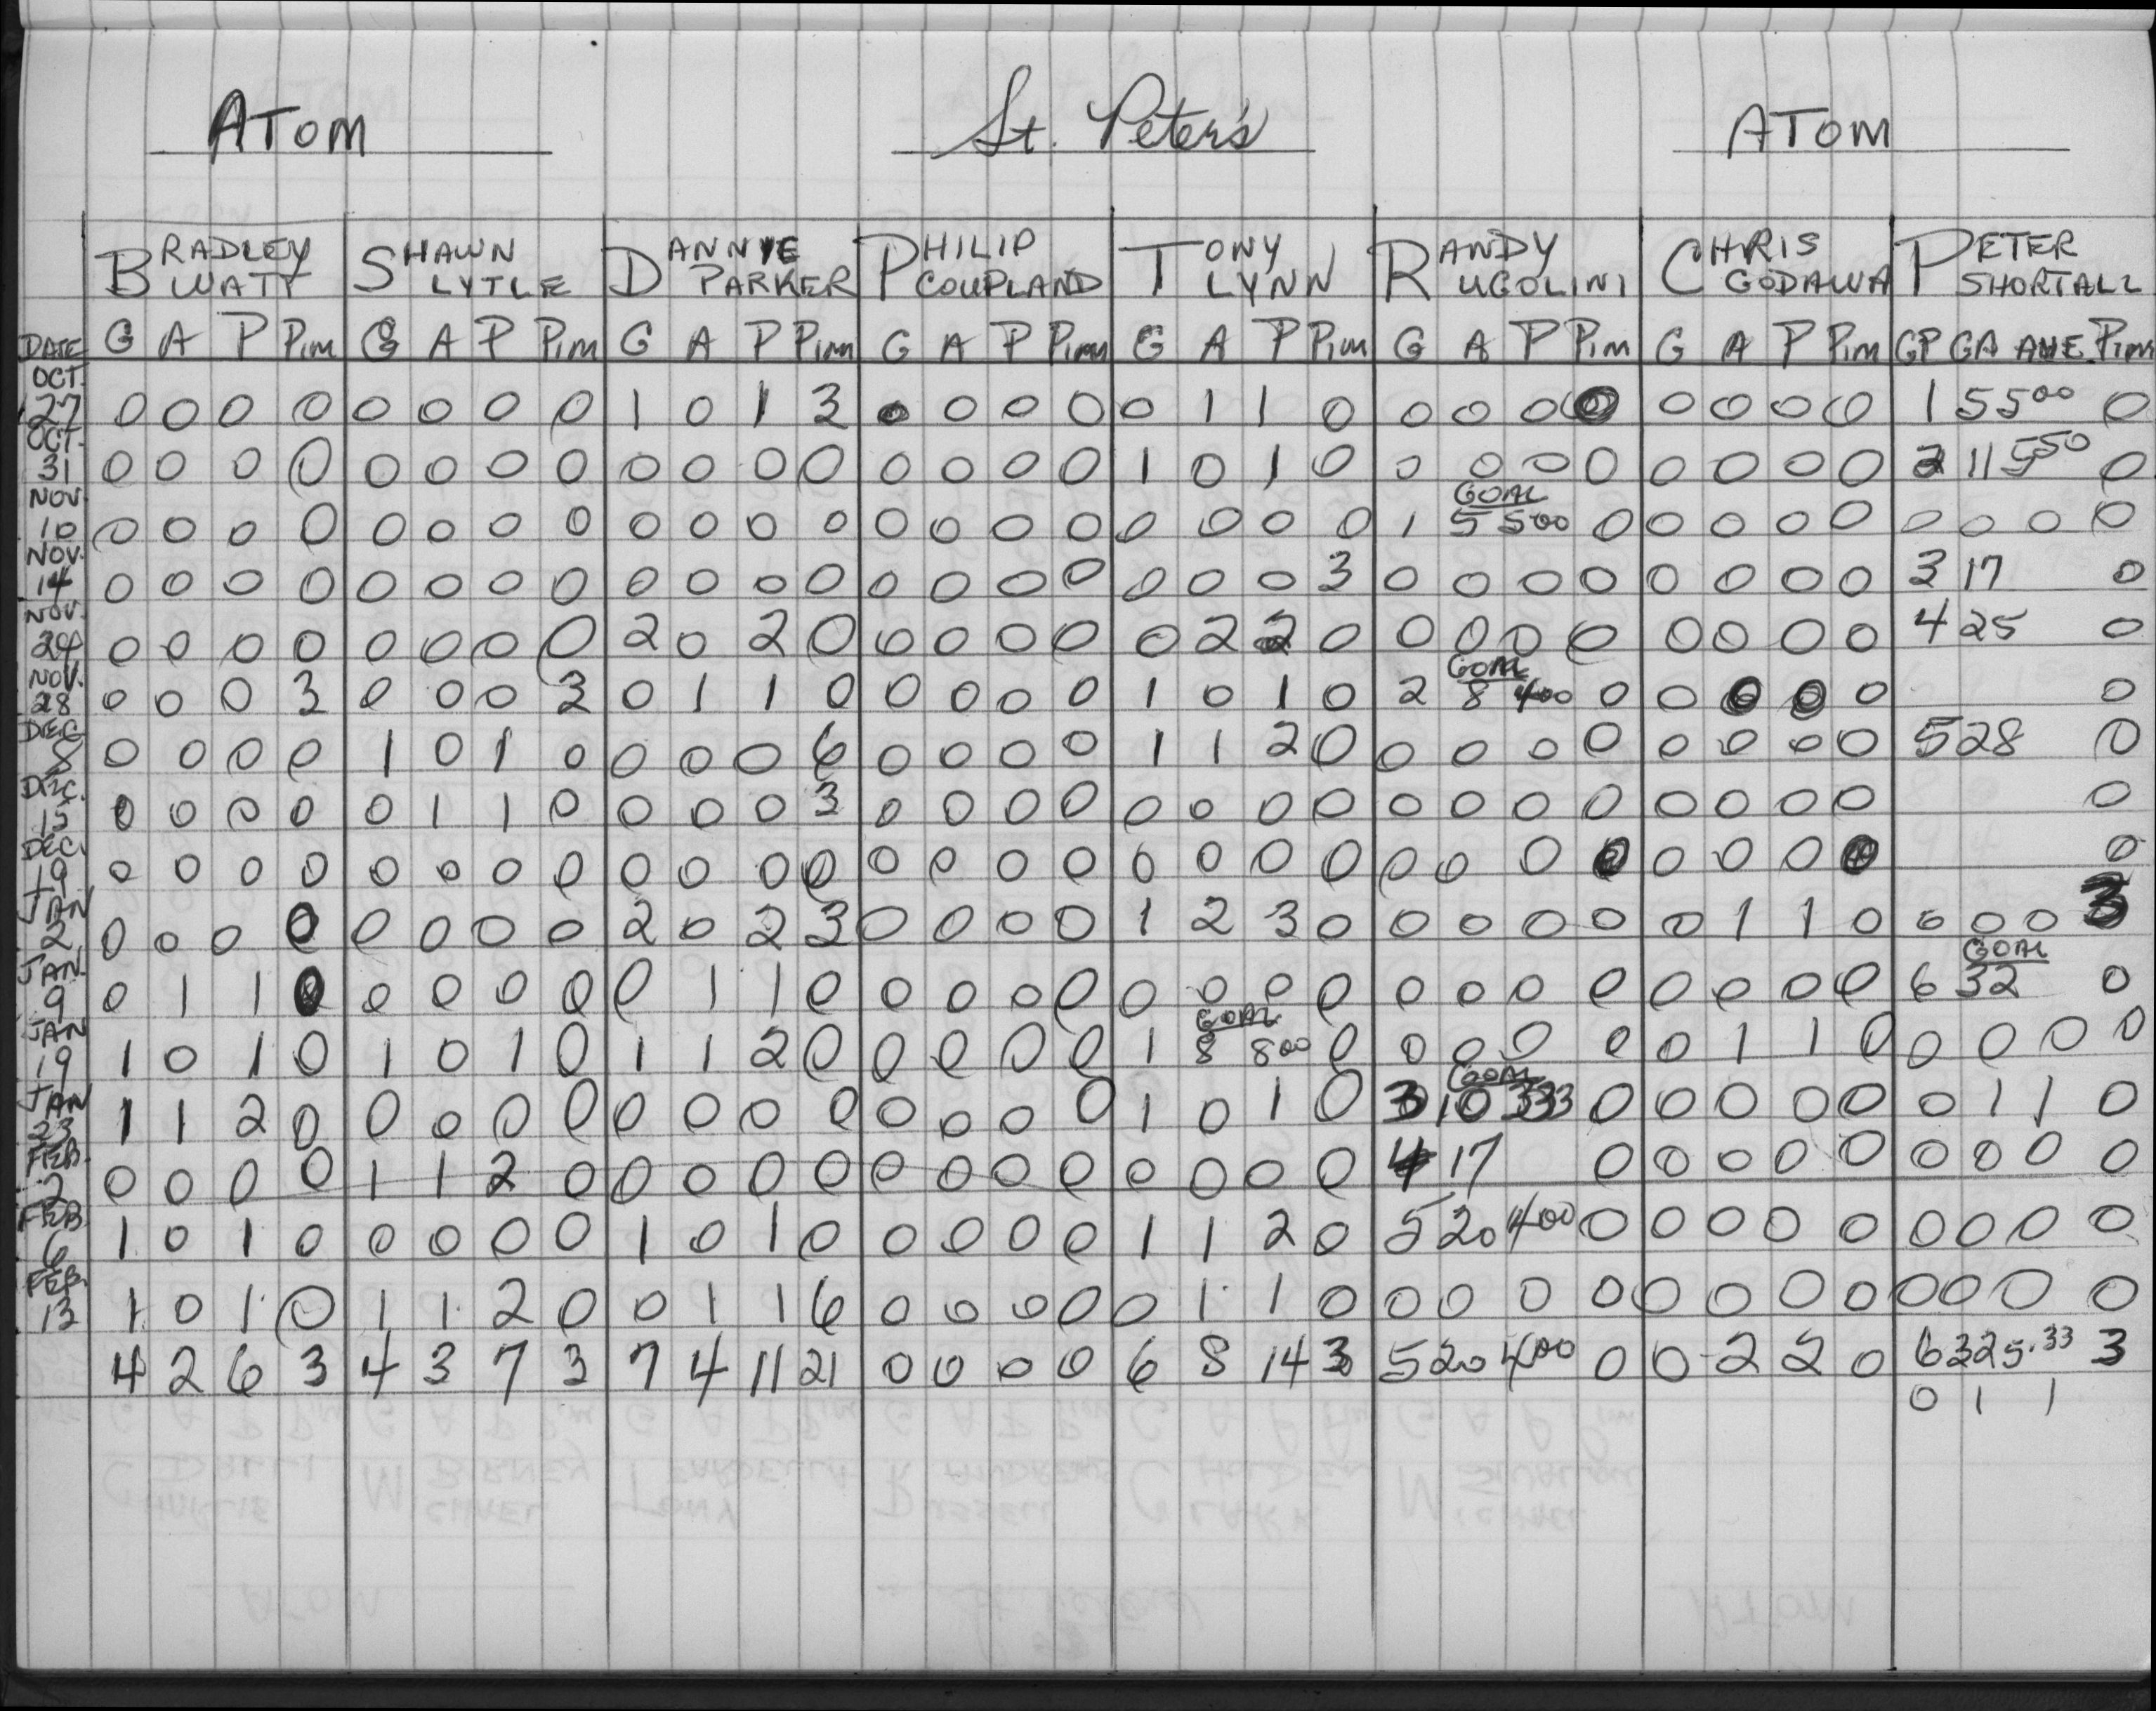 ATOM St. Peter's ATOM
BRADLEY WATT SHAWN LYTLE DANNYE PARKER PHILIP COUPLAND TONY LYNN RANDY UGOLINI CHRIS GODAWA PETER SHORTALL
DATE G A P Pim G A P Pim G A P Pim G A P Pim G A P Pim G A P Pim G A P Pim GP GA AVE. Pim
OCT. 27 0 0 0 0 0 0 0 0 1 0 1 3 0 0 0 0 0 1 1 0 0 0 0 0 0 0 0 0 1 5 5 00 0
OCT. 31 0 0 0 0 0 0 0 0 0 0 0 0 0 0 0 0 1 0 1 0 0 0 0 0 0 0 0 0 2 11 5 50 0
GOAL
NOV. 10 0 0 0 0 0 0 0 0 0 0 0 0 0 0 0 0 0 0 0 0 1 5 5 00 0 0 0 0 0 0 0 0 0
NOV. 14 0 0 0 0 0 0 0 0 0 0 0 0 0 0 0 0 0 0 0 3 0 0 0 0 0 0 0 0 3 17 0
NOV. 24 0 0 0 0 0 0 0 0 2 0 2 0 0 0 0 0 0 2 2 0 0 0 0 0 0 0 0 0 4 25 0
GOAL
NOV. 28 0 0 0 3 0 0 0 3 0 1 1 0 0 0 0 0 1 0 1 0 2 8 4 00 0 0 0 0 0 0
DEC 8 0 0 0 0 1 0 1 0 0 0 0 6 0 0 0 0 1 1 2 0 0 0 0 0 0 0 0 0 5 28 0
DEC. 15 0 0 0 0 0 1 1 0 0 0 0 3 0 0 0 0 0 0 0 0 0 0 0 0 0 0 0 0 0
DEC. 19 0 0 0 0 0 0 0 0 0 0 0 0 0 0 0 0 0 0 0 0 0 0 0 0 0 0 0 0 0
JAN 2 0 0 0 0 0 0 0 0 2 0 2 3 0 0 0 0 1 2 3 0 0 0 0 0 0 1 1 0 0 0 0 3
GOAL
JAN. 9 0 1 1 0 0 0 0 0 0 1 1 0 0 0 0 0 0 0 0 0 0 0 0 0 0 0 0 0 6 32 0
GOAL
JAN 19 1 0 1 0 1 0 1 0 1 1 2 0 0 0 0 0 1 8 8 00 0 0 0 0 0 0 1 1 0 0 0 0 0
GOAL
JAN 23 1 1 2 0 0 0 0 0 0 0 0 0 0 0 0 0 1 0 1 0 3 10 3 33 0 0 0 0 0 0 1 1 0
FEB. 2 0 0 0 0 1 1 2 0 0 0 0 0 0 0 0 0 0 0 0 0 4 17 0 0 0 0 0 0 0 0 0
FEB 6 1 0 1 0 0 0 0 0 1 0 1 0 0 0 0 0 1 1 2 0 5 20 4 00 0 0 0 0 0 0 0 0 0
FEB. 13 1 0 1 0 1 1 2 0 0 1 1 6 0 0 0 0 0 1 1 0 0 0 0 0 0 0 0 0 0 0 0 0
4 2 6 3 4 3 7 3 7 4 11 21 0 0 0 0 6 8 14 3 5 20 4 00 0 0 2 2 0 6 32 5.33 3
0 1 1